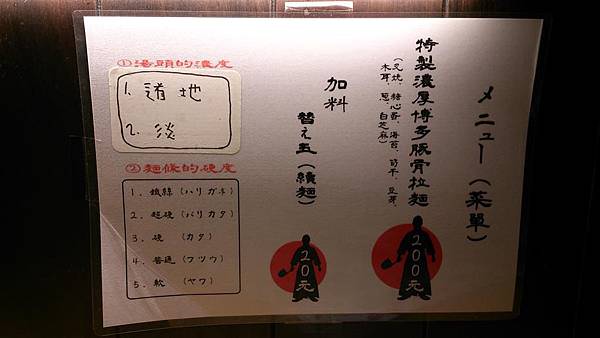 メニュー（菜單）
特製濃厚博多豚骨拉麵
（叉燒、糖心蛋、海苔、筍干、豆芽
木耳、蔥、白芝麻）
200元
加料
替え玉（續麵）
20元
①湯頭的濃度
1. 道地
2. 淡
②麵條的硬度
1. 鐵絲（ハリガネ）
2. 超硬（バリカタ）
3. 硬（カタ）
4. 普通（フツウ）
5. 軟（ヤワ）